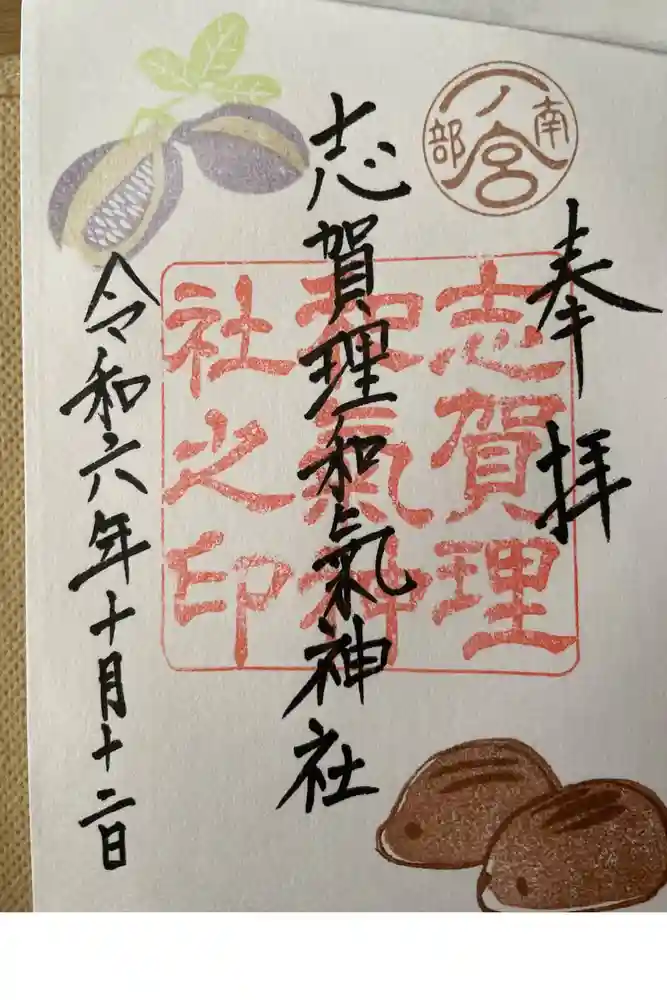 奉拝
南部
一ノ宮
志賀理和氣神社
志賀理
和氣神
社之印
令和六年十月十二日